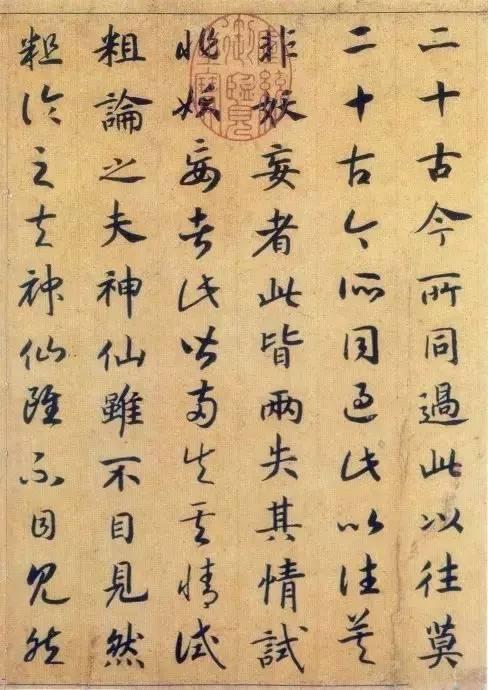 二十古今所同過此以往莫
二十古今所同過此以往莫
非妖妄者此皆兩失其情試
非妖妄者此皆兩失其情試
粗論之夫神仙雖不目見然
粗論之夫神仙雖不目見然
乾隆御覽之寶